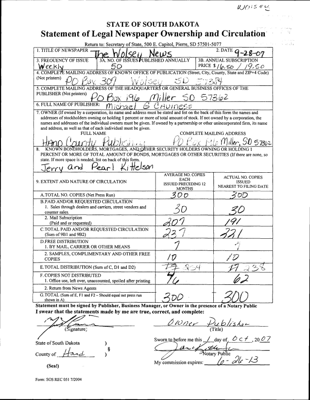 STATE OF SOUTH DAKOTA
Statement of Legal Newspaper Ownership and Circulation
Return to: Secretary of State, 500 E. Capitol, Pierre, SD 57501-5077
1. TITLE OF NEWSPAPER The Wolsey News
2. DATE 9-28-07
3. FREQUENCY OF ISSUE Weekly
3A. NO. OF ISSUES PUBLISHED ANNUALLY 50
3B. ANNUAL SUBSCRIPTION PRICE $16.50 / 19.50
4. COMPLETE MAILING ADDRESS OF KNOWN OFFICE OF PUBLICATION (Street, City, County, State and ZIP+4 Code)
(Not printers) PO Box 309 Wolsey SD
5. COMPLETE MAILING ADDRESS OF THE HEADQUARTERS OR GENERAL BUSINESS OFFICES OF THE
PUBLISHER (Not printer) PO Box 196 Miller SD 57362
6. FULL NAME OF PUBLISHER: Michael S
7. OWNER (If owned by a corporation, its name and address must be stated and list on the back of this form the names and
addresses of stockholders owning or holding 1 percent or more of total amount of stock. If not owned by a corporation, the
names and addresses of the individual owners must be given. If owned by a partnership or other unincorporated firm, its name
and address, as well as that of each individual must be given.
FULL NAME COMPLETE MAILING ADDRESS
Hand County Publishing PO Box 196 Miller, SD 57362
8. KNOWN BONDHOLDERS, MORTGAGES, AND OTHER SECURITY HOLDERS OWNING OR HOLDING 1
PERCENT OR MORE OF TOTAL AMOUNT OF BONDS, MORTGAGES OR OTHER SECURITIES (If there are none, so
state. If more space is needed, list on back of this form.
Jerry and Pearl Kittelson
9. EXTENT AND NATURE OF CIRCULATION
AVERAGE NO. COPIES EACH ISSUED PRECEDING 12 MONTHS
ACTUAL NO. COPIES ISSUED NEAREST TO FILING DATE
A. TOTAL NO. COPIES (Net Press Run) 300 300
B. PAID AND/OR REQUESTED CIRCULATION
1. Sales through dealers and carriers, street vendors and
counter sales 30 30
2. Mail Subscription
(Paid and or requested) 207 191
C. TOTAL PAID AND/OR REQUESTED CIRCULATION
(Sum of 9B1 and 9B2) 237 221
D. FREE DISTRIBUTION
1. BY MAIL, CARRIER OR OTHER MEANS 7 7
2. SAMPLES, COMPLIMENTARY AND OTHER FREE
COPIES 10 10
E. TOTAL DISTRIBUTION (Sum of C, D1 and D2)
F. COPIES NOT DISTRIBUTED
1. Office use, left over, unaccounted, spoiled after printing 46 62
2. Return from News Agents
G. TOTAL (Sum of E, F1 and F2 - Should equal net press run
shown in A) 300 300
Statement must be signed by Publisher, Business Manager, or Owner in the presence of a Notary Public
I swear that the statements made by me are true, correct, and complete:
Owner Publisher
(Signature) (Title)
State of South Dakota )
§
County of Hand )
Sworn to before me this 1 day of Oct, 2007
Notary Public
(Seal)
My commission expires: 6-26-13
Form: SOS REC 051 7/2004